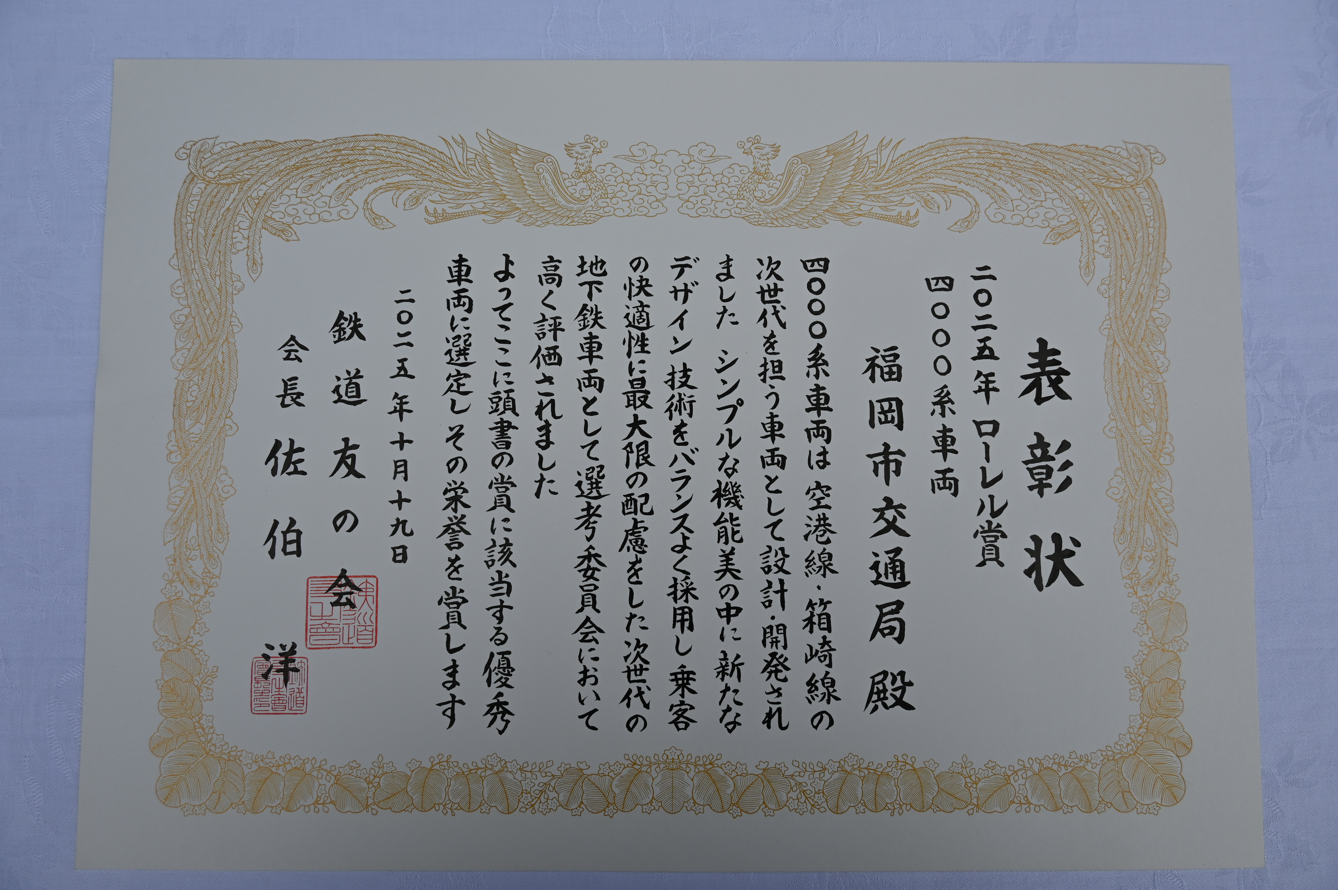 表彰状
二〇二五年 ローレル賞
四〇〇〇系車両
福岡市交通局 殿
四〇〇〇系車両は 空港線・箱崎線の
次世代を担う車両として 設計・開発され
ました シンプルな機能美の中に 新たな
デザイン 技術をバランスよく採用し 乗客
の快適性に最大限の配慮をした 次世代の
地下鉄車両として 選考委員会において
高く評価されました
よってここに頭書の賞に該当する優秀
車両に選定し その栄誉を賞します
二〇二五年十月十九日
鉄道友の会
会長 佐伯 洋